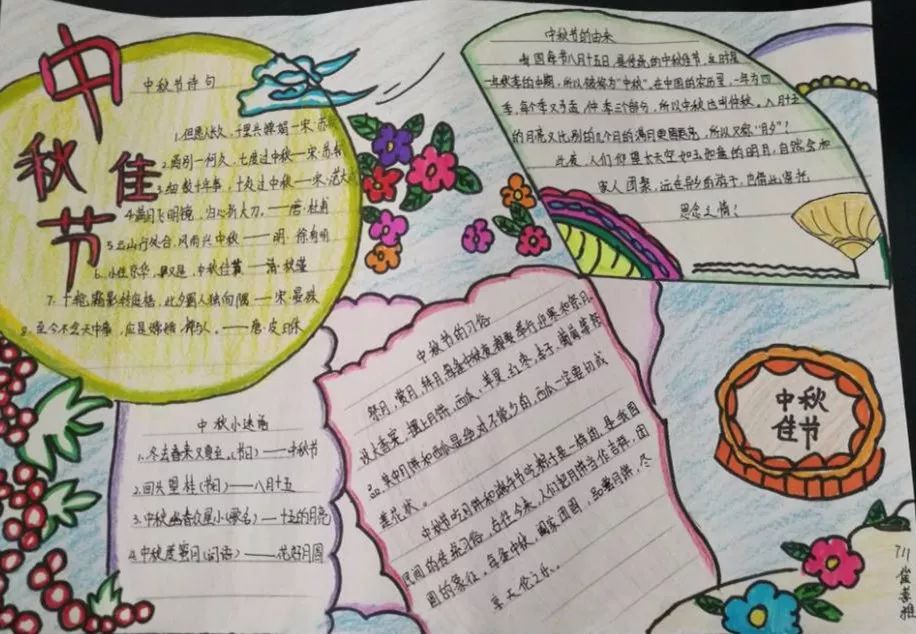 中秋佳节
中秋节诗句
1.但愿人长久,千里共婵娟—宋·苏轼
2.离别一何久,七度过中秋—宋·苏辙
3.细数十年事,十处过中秋—宋·范大成
4.满月飞明镜,归心折大刀。——唐·杜甫
5.云山行处合,风雨兴中秋——明·徐有明
6.小住京华,早又是,中秋佳节——清·秋瑾
7.十轮霜影转庭梧,此夕羁人独向隅——宋·晏殊
8.至今不会天中事,应是嫦娥掷与人。——唐·皮日休
中秋节的由来
每年八月十五日,是传统的中秋佳节。
一年秋季的中期,所以被称为"中秋"。在中国的农历里,一年分四
季,每个季又分孟、仲、季三个部分,所以中秋也叫仲秋。八月十五
的月亮又比别的几个月的满月更圆更亮,所以又叫"月夕"!
此夜,人们仰望长天空如玉如盘的明月,自然会和
家人团聚,远在异乡的游子,也借此寄托
思念之情!
中秋小迷语
1.冬去春来又夏至。(节日)——中秋节
2.回头望桂(节日)——八月十五
3.中秋幽香众星小(歌名)—十五的月亮
4.中秋度蜜月(词语)——花好月圆
中秋节的习俗
祭月,赏月,拜月,每逢中秋夜都要举行迎寒和祭月。
设大香案,摆上月饼,西瓜、苹果、红枣、李子、葡萄等祭
品,其中月饼和西瓜是绝对不能少的,西瓜一定要切成
莲花状。
中秋节吃月饼和端午节吃粽子是一样的,是我国
民间的传统习俗,古往今来,人们把月饼当作吉祥,团
圆的象征。每逢中秋,阖家团圆,品尝月饼,尽
享天伦之乐。
中秋
佳节
711